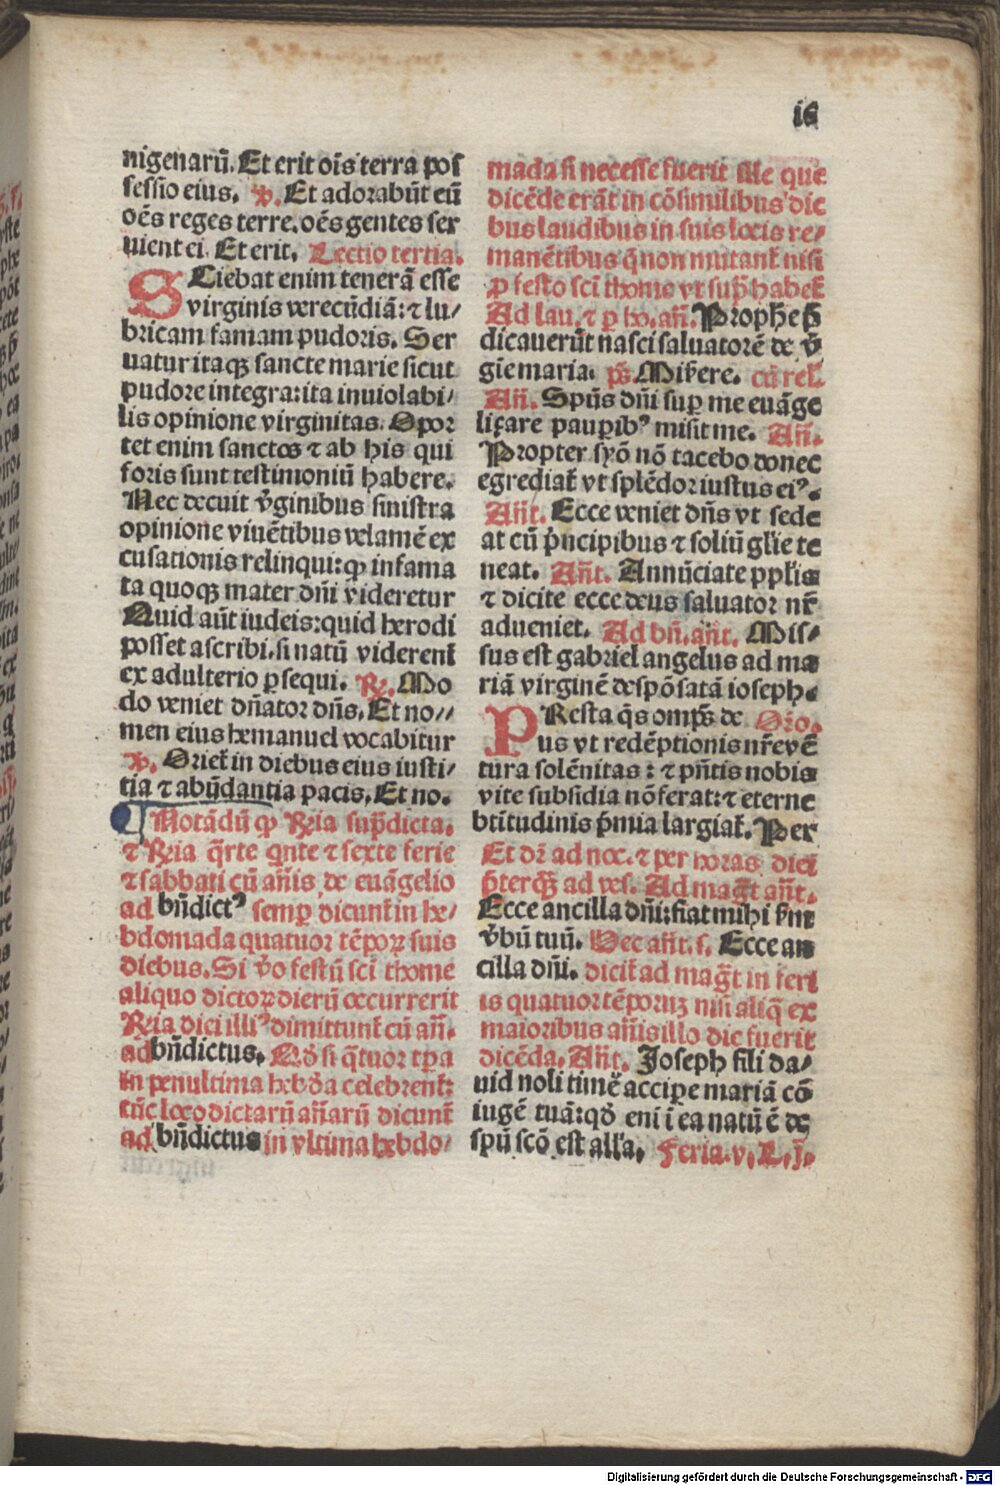 is
nigenarū. Et erit oīs terra pos
sessio eius. ℣. Et adorabūt eū
oēs reges terre. oēs gentes ser
uient ei. Et erit. Lectio tertia.
SCiebat enim tenerā esse
virginis verecūdiā: ⁊ lu/
bricam famam pudoris. Ser
uatur itaqȝ sancte marie sicut
pudore integra: ita inuiolabi/
lis opinione virginitas. Opor
tet enim sanctos ⁊ ab his qui
foris sunt testimoniū habere.
Nec decuit v̄ginibus sinistra
opinione viuētibus velamē ex
cusationis relinqui: ꝙ infama
ta quoqȝ mater dn̄i videretur
Quid aūt iudeis: quid herodi
posset ascribi. si natū viderent̄
ex adulterio ꝑsequi. ℟. Mo
do veniet dn̄ator dn̄s. Et no//
men eius hemanuel vocabitur
℣. Oriet̄ in diebus eius iusti/
tia ⁊ abūdantia pacis. Et no.
Notādū ꝙ ℟ria sup̄dicta.
⁊ ℟ria q̄rte qn̄te ⁊ sexte ferie
⁊ sabbati cū an̄is de euāgelio
ad bn̄dictꝰ semꝑ dicunt̄ in he/
bdomada quatuor tēporꝝ suis
diebus. Si v̄o festū sci thome
aliquo dictorꝝ dierū occurrerit
℟ria dici illiꝰ dimittunt̄ cū an̄.
ad bn̄dictus. Qd̄ si q̄tuor tp̄a
in penultima hebd̄a celebrent̄:
tūc loco dictarū an̄arū dicunt̄
ad bn̄dictus in vltima hebdo/
mada si necesse fuerit ille que
dicēde erāt in cōsimilibus die
bus laudibus in suis locis re/
manētibus q̄ non mutant̄ nisi
ꝓ festo sci thome vt sup̄ habet̄
Ad lau. ⁊ ꝑ ho. an̄. Prophe p̄
dicauerūt nasci saluatorē de v̄
gīe maria. ps̄. Mis̄ere. cū rel.
An̄. Spūs dn̄i suꝑ me euāge
liȝare pauꝑibꝰ misit me. An̄.
Propter syō nō tacebo donec
egrediat̄ vt splēdor iustus eiꝰ.
An̄t. Ecce veniet dn̄s vt sede
at cū p̄ncipibus ⁊ soliū gl̄ie te
neat. An̄t. Annūciate ppl̄is
⁊ dicite ecce deus saluator nr̄
adueniet. Ad bn̄. an̄t. Mis/
sus est gabriel angelus ad ma
riā virginē despōsatā ioseph.
PResta q̄s omps̄ de Orō.
us vt redēptionis nr̄e vē
tura solēnitas: ⁊ pn̄tis nobis
vite subsidia cōferat: ⁊ eterne
btītudinis p̄mia largiat̄. Per
Et dr̄ ad noc. ⁊ per horas diei
p̄terq̄ȝ ad ves. Ad maḡt an̄t.
Ecce ancilla dn̄i: fiat mihi s̄m
v̄bū tuū. Hec an̄t. s. Ecce an
cilla dn̄i. dicit̄ ad maḡt in feri
is quatuor tēporuȝ nisi aliq̄ ex
maioribus an̄is illo die fuerit
dicēda. An̄t. Joseph fili da/
uid noli timē accipe mariā cō
iugē tuā: qd̄ eni ī ea natū ē de
spū scō est all̄a. Feria. v. L. j.
Digitalisierung gefördert durch die Deutsche Forschungsgemeinschaft - DFG